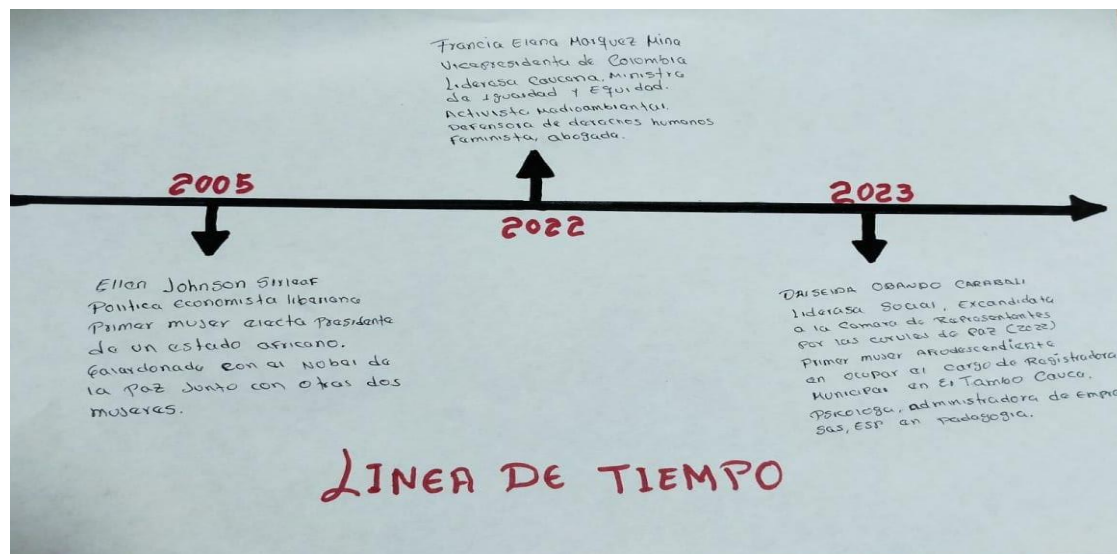 Francia Elena Marquez Mina
Vicepresidenta de Colombia
Lideresa Caucana, Ministra
de Iguardad y Equidad.
Activista Medioambiental.
Defensora de derechos humanos
Feminista, abogada.
2005
2022
2023
Ellen Johnson Sirleaf
Politica economista liberiana
Primer mujer electa Presidenta
de un estado africano.
Galardonada con el Nobel de
la Paz Junto con otras dos
mujeres.
DAISEIDA OBANDO CARABALI
Lideresa Social, Excandidata
a la Camara de Representantes
Por las curules de Paz (2022)
Primer mujer AFrodescendiente
en ocupar el cargo de Registradora
Municipal en El Tambo Cauca.
Psicologa, administradora de Empre
sas, ESP en Pedagogia.
LINEA DE TIEMPO